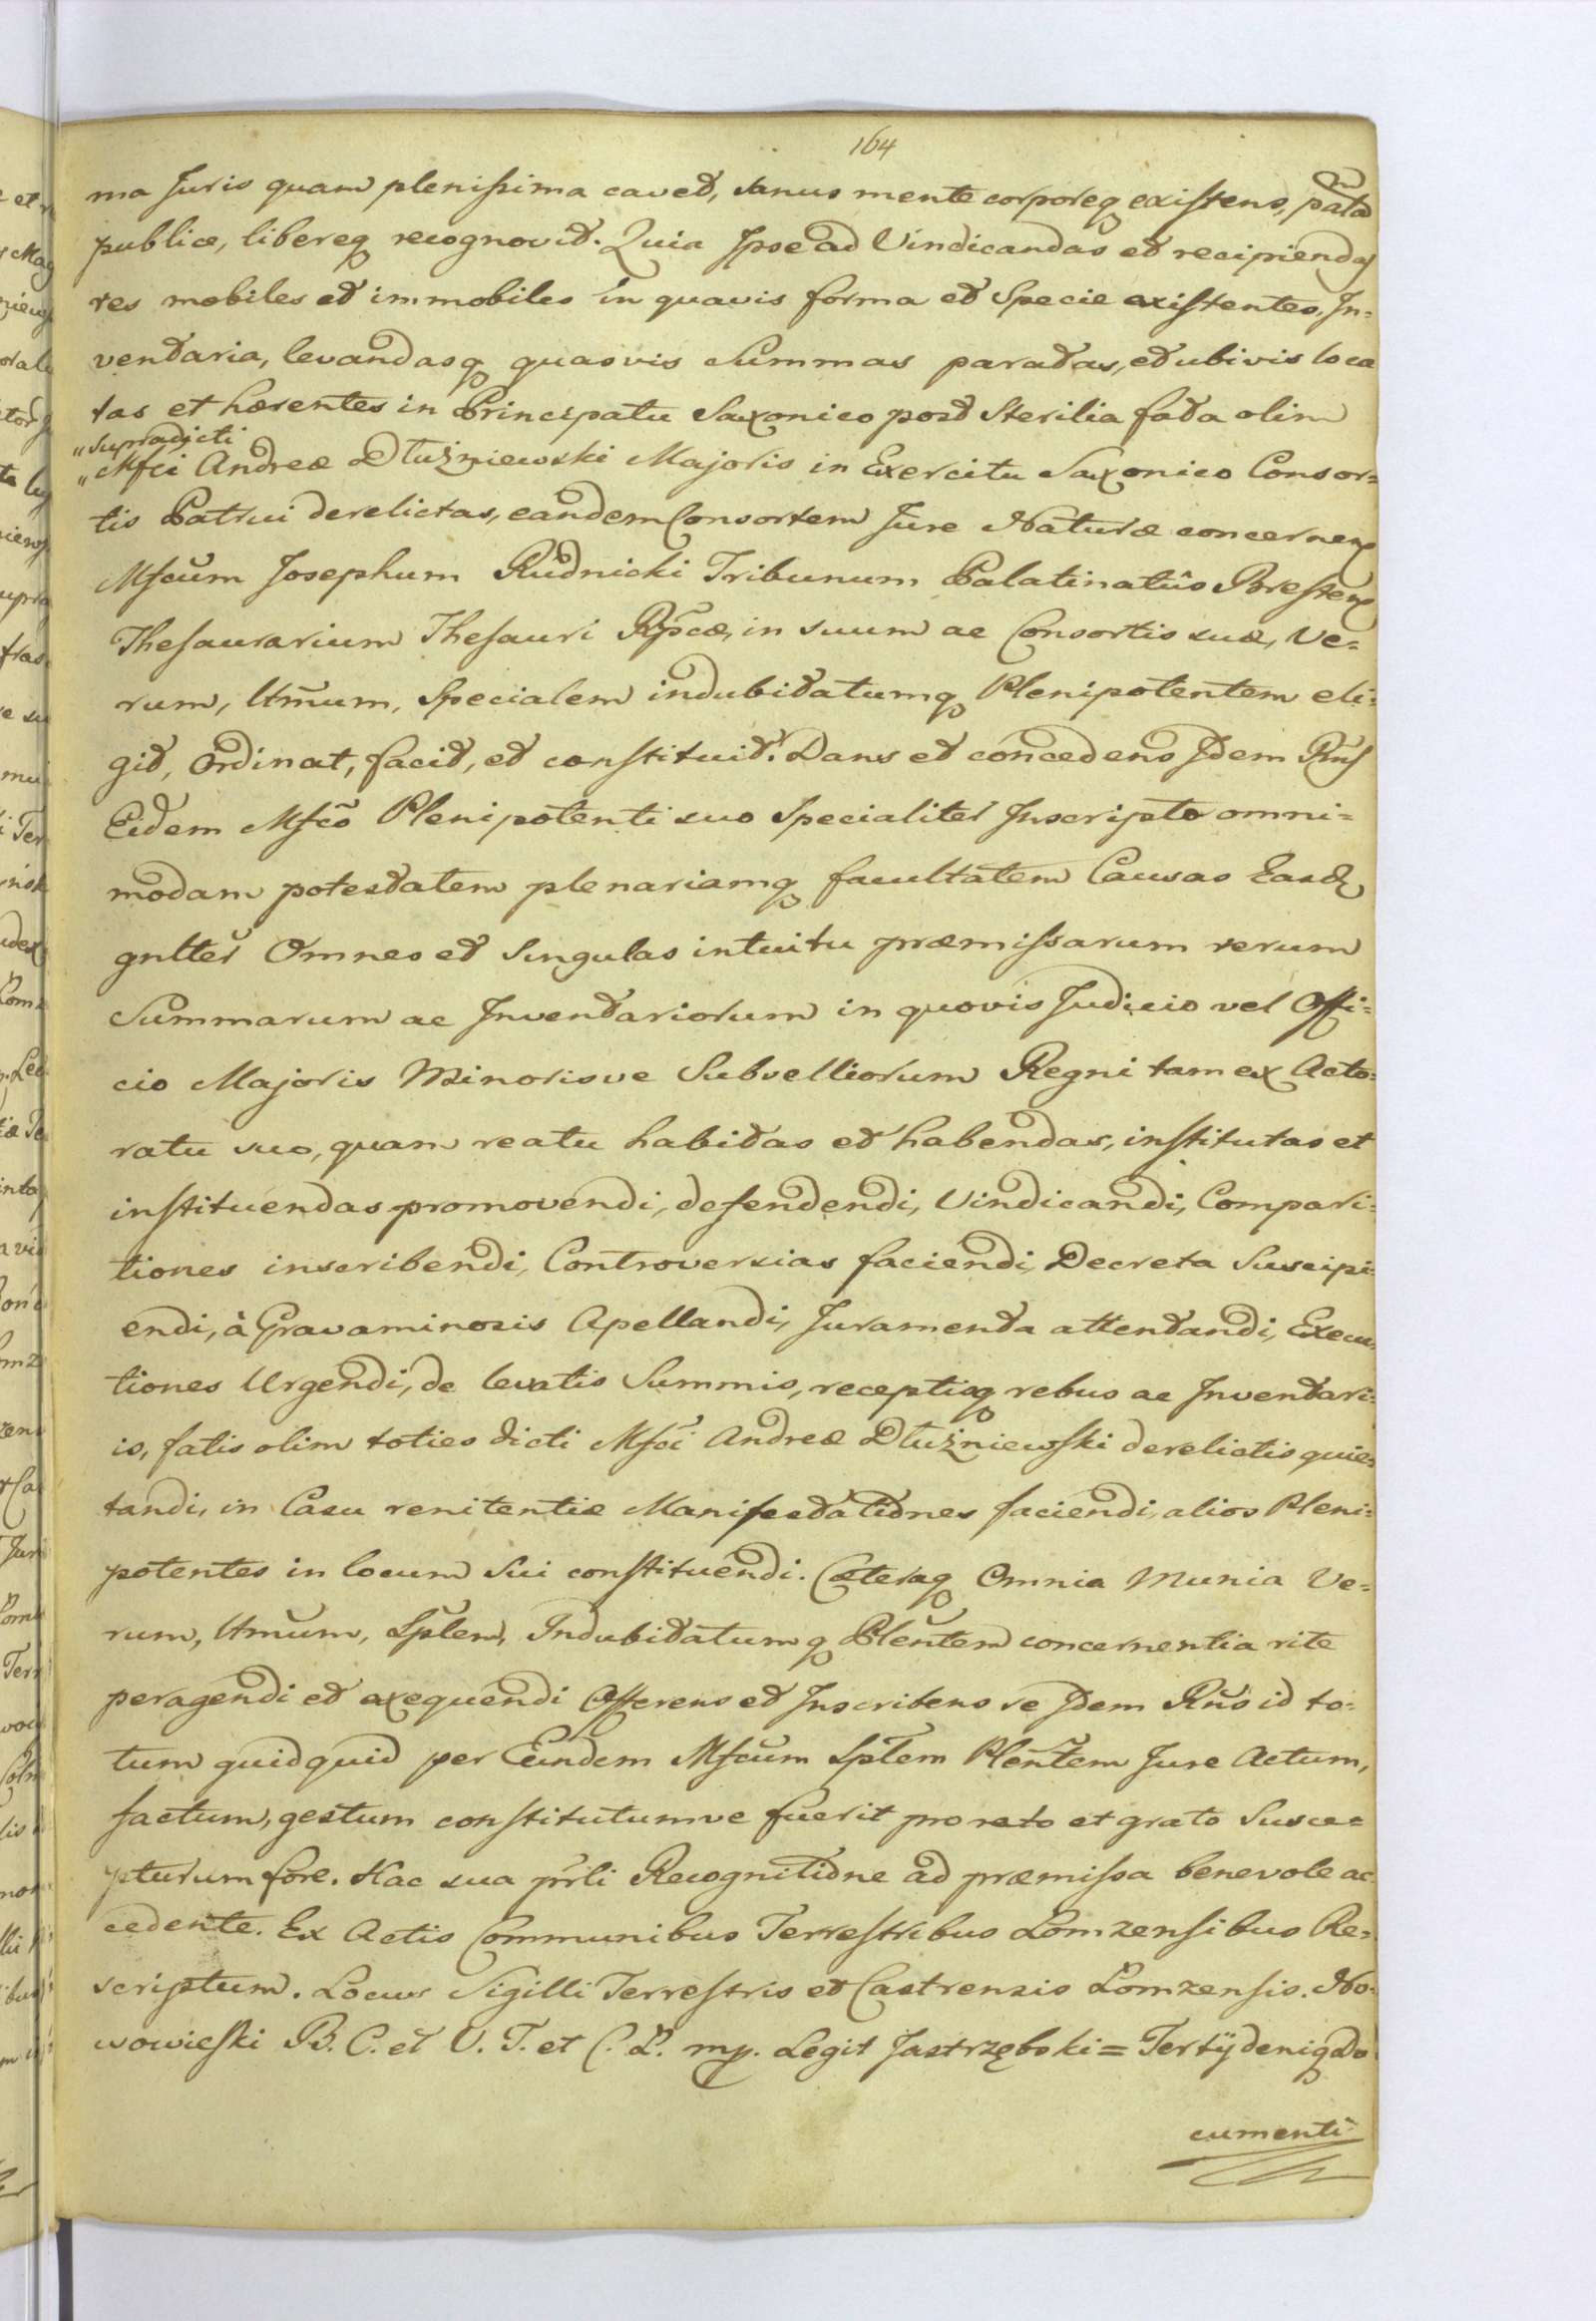 164
ma Juris quam plenissima cavet, sanus mente corporeq existens, palã
publice, libereq recognovit. Quia Ipse ad Vindicandas et recipiendas
res mobiles et immobiles in quavis forma et Specie existentes, In=
ventaria, levandasq quasvis Summas paratas, et ubivis loca
tas et hærentes in Principatu Saxonico post Sterilia fata olim
"supradicti
"Mfci Andreæ Dłużniewski Majoris in Exercitu Saxonico Consor=
tis Patrui derelictas, eandem Consortem Jure Naturæ concernen
Mfcum Josephum Rudnicki Tribunum Palatinatûs Bresten
Thesaurarium Thesauri Rpcæ, in suum ac Consortis suæ, Ve=
rum, Ltmum, Specialem indubitatumq Plenipotentem eli=
git, ordinat, facit, et constituit. Dans et concedens Idem Rns
Eidem Mfco Plenipotenti suo Specialiter Inscripto omni=
modam potestatem plenariamq facultatem Causas Easd
gnlter Omnes et Singulas intuitu præmissarum rerum
Summarum ac Inventariorum in quovis Judicio vel Offi=
cio Majoris Minorisve Subselliorum Regni tam ex Acto=
ratu suo, quam reatu habitas et habendas, institutas et
instituendas promovendi, defendendi, Vindicandi, Compari=
tiones inscribendi, Controversias faciendi, Decreta Suscipi=
endi, à Gravaminosis Apellandi, Juramenta attentandi, Execu=
tiones Urgendi, de levatis Summis, receptisq rebus ac Inventari=
is, fatis olim toties dicti Mfci Andreæ Dłużniewski derelictis quie=
tandi, in Casu renitentiæ Manifestationes faciendi, alios Pleni=
potentes in locum Sui constituendi. Cæteraq Omnia Munia Ve=
rum, Ltmum, Splem, Indubitatumq Plentem concernentia rite
peragendi et exequendi Offerens et Inscribens se Idem Rns id to=
tum quidquid per Eundem Mfcum Splem Plentem Jure Actum,
factum, gestum constitutumve fuerit pro rato et grato Susce=
pturum fore. Hac sua prli Recognitione ad præmissa benevole ac
cedente. Ex Actis Communibus Terrestribus Lomzensibus Re=
scriptum. Locus Sigilli Terrestris et Castrensis Lomzensis. No=
wowieski B. C. et V. T. et C. Ł. mp. Legit Jastrzębski = Tertÿ deniq Do
cumenti